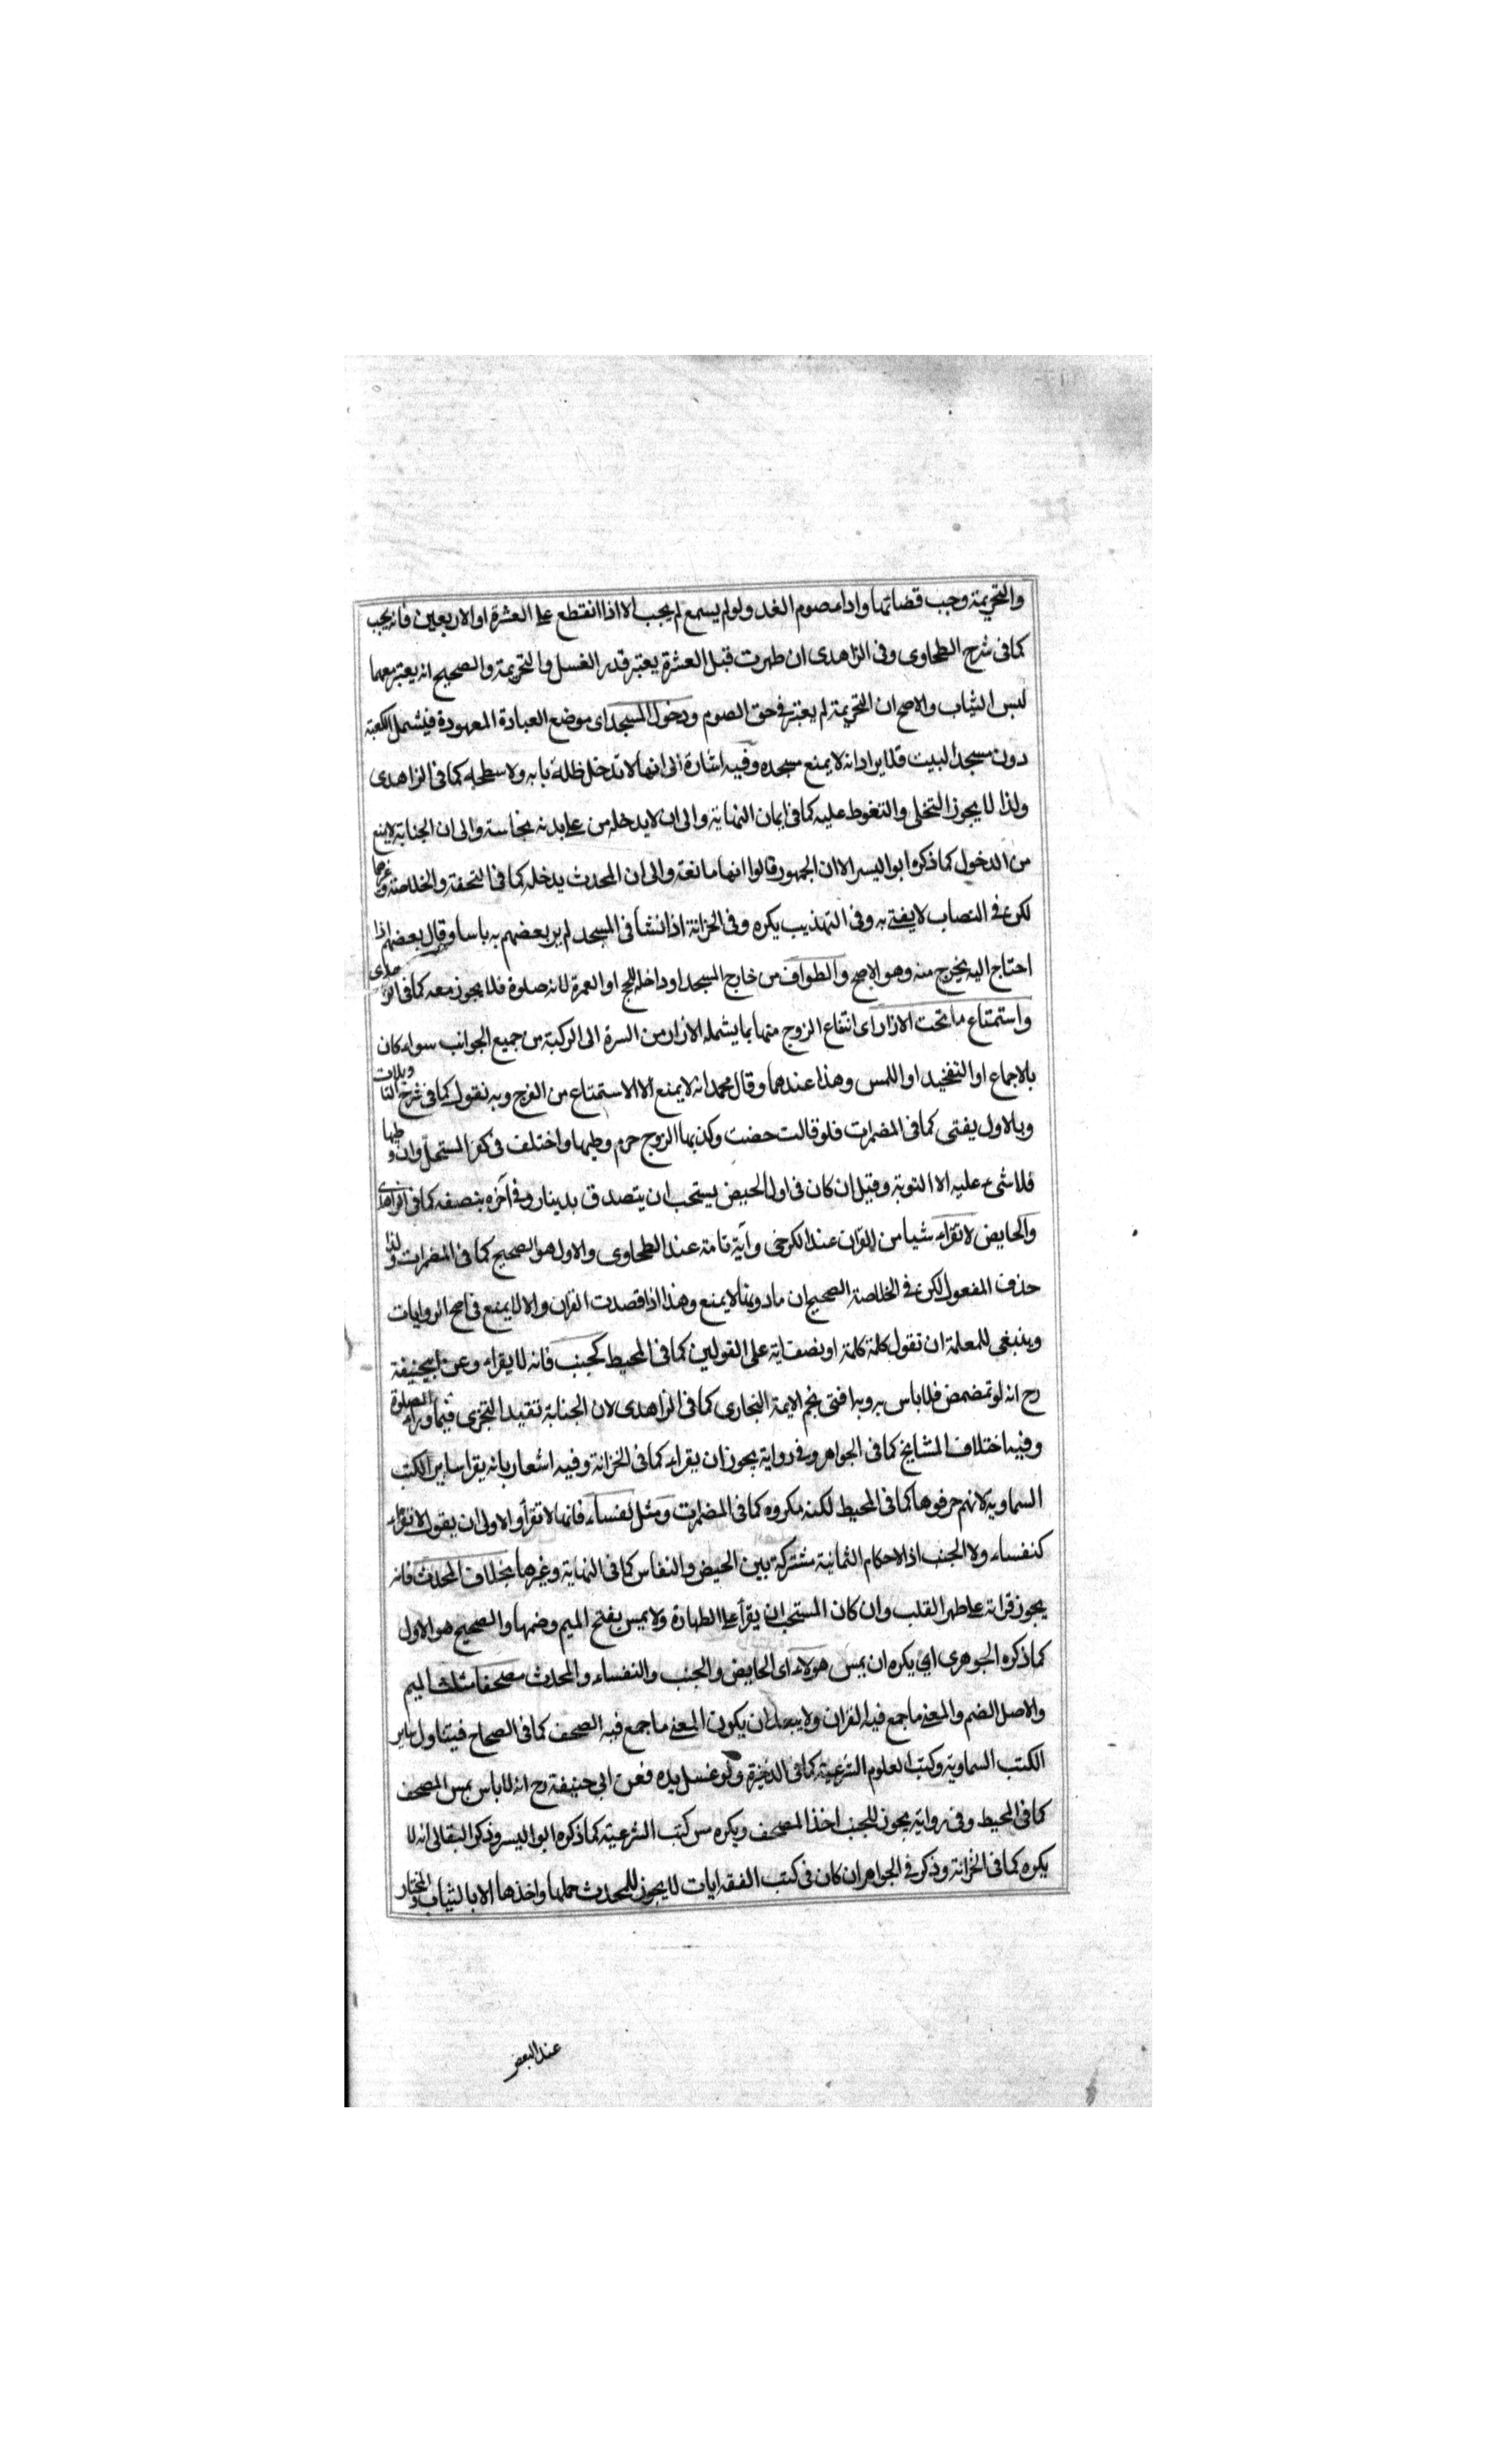 والتحريمة وجب قضائها واداء صوم الغد ولو لم يسمع لم يجب الا اذا انقطع على العشرة او الاربعين فانه يجب
كما فى شرح الطحاوى وفى الزاهدى ان طهرت قبل العشرة يعتبر قدر الغسل والتحريمة والصحيح انه يعتبر معهما
لبس الثياب والاصح ان التحريمة لم يعتبر فى حق الصوم ودخول المسجد اى موضع العبادة المعهودة فيشمل الكعبة
دون مسجد البيت فلا يراد انه لا يمنع مسجده وفيه اشارة الى انها لا تدخل ظلة بابه ولا سطحه كما فى الزاهدى
ولذا لا يجوز التخلى والتغوط عليه كما فى ايمان النهاية والى ان لا يدخله من على بدنه نجاسة والى ان الجنابة لا يمنع
من الدخول كما ذكره ابو اليسر الا ان الجمهور قالوا انها مانعة والى ان المحدث يدخله كما فى التحفة والخلاصة وغيرها
لكن فى النصاب لا يفتى به وفى التهذيب يكره وفى الخزانة اذا نشأ فى المسجد لم ير بعضهم به باسا وقال بعضهم اذا
احتاج اليه يخرج منه وهو الاصح والطواف من خارج المسجد او داخله للحج او العمرة لانه صلوة فلا يجوز معه كما فى الزاهدى
واستمتاع ما تحت الازار اى انتفاع الزوج منها بما يشمله الازار من السرة الى الركبة من جميع الجوانب سواء كان
بالاجماع او التفخيد او اللمس وهذا عندهما وقال محمد انه لا يمنع الا الاستمتاع من الفرج وبه نقول كما فى شرح التاويلات
وبالاول يفتى كما فى المضمرات فلو قالت حضت وكذبها الزوج حرم وطيها واختلف فى كفر المستحل وان وطيها
فلا شىء عليه الا التوبة وقيل ان كان فى اول الحيض يستحب ان يتصدق بدينار وفى آخره بنصفه كما فى الزاهدى
والحايض لا تقراء شيا من القرآن عند الكرخى وآية تامة عند الطحاوى والاول هو الصحيح كما فى المضمرات ولذا
حذف المفعول لكن فى الخلاصة الصحيح ان ما دونها لا يمنع وهذا اذا قصدت القران والا لا يمنع فى اصح الروايات
وينبغى للمعلمة ان تقول كلمة كلمة او نصف اية على القولين كما فى المحيط كجنب فانه لا يقراء وعن ابى حنيفة
رح انه لو تمضمض فلا باس به وبه افتى نجم الايمة البخارى كما فى الزاهدى لان الجنابة تقيد التجزى فيما وراء الصلوة
وفيه اختلاف المشايخ كما فى الجواهر وفى رواية يجوز ان يقراء كما فى الخزانة وفيه اشعار بانه يقرا ساير الكتب
السماويه لانهم حرفوها كما فى المحيط لكنه مكروه كما فى المضمرات ومثل نفساء فانها لا تقرأ والاولى ان يقول لا تقراء
كنفساء ولا الجنب اذ الاحكام الثمانية مشتركة بين الحيض والنفاس كما فى النهاية وغيرها بخلاف المحدث فانه
يجوز قراته على ظهر القلب وان كان المستحب ان يقرأ على الطهارة ولا يمس بفتح الميم وضمها والصحيح هو الاول
كما ذكره الجوهرى اى يكره ان يمس هولاء اى الحايض والجنب والنفساء والمحدث مصحفا مثلث الميم
والاصل الضم والمعنى ما جمع فيه القران ولا يبعد ان يكون المعنى ما جمع فيه الصحف كما فى الصحاح فيتناول ساير
الكتب السماوية وكتب العلوم الشرعية كما فى الذخيرة ولو غسل يده فعن ابى حنيفة رح انه لا باس بمس المصحف
كما فى المحيط وفى رواية يجوز للجنب اخذ المصحف ويكره مس كتب الشرعية كما ذكره ابو اليسر وذكر البقالى انه لا
يكره كما فى الخزانة وذكر فى الجواهر ان كان فى كتب الفقه ايات لا يجوز للمحدث حملها واخذها الا بالثياب والمختار
عند البعض